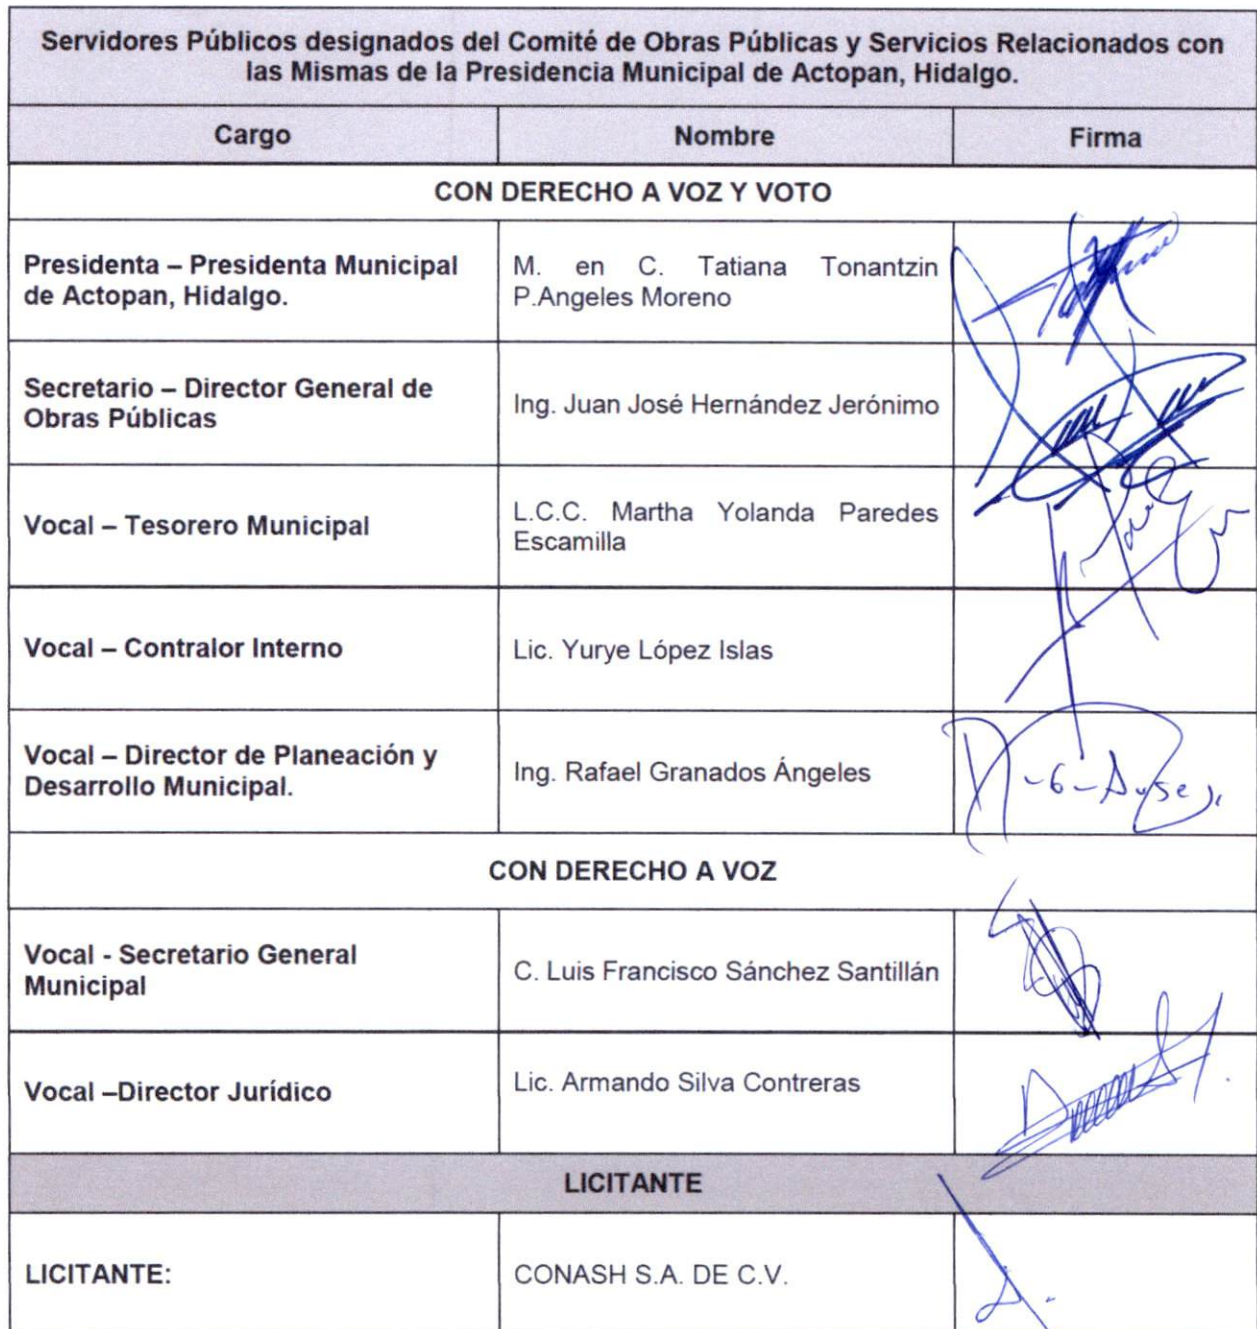 Servidores Públicos designados del Comité de Obras Públicas y Servicios Relacionados con
las Mismas de la Presidencia Municipal de Actopan, Hidalgo.
Cargo Nombre Firma
CON DERECHO A VOZ Y VOTO
Presidenta – Presidenta Municipal
de Actopan, Hidalgo.
M. en C. Tatiana Tonantzin
P.Angeles Moreno
Secretario – Director General de
Obras Públicas
Ing. Juan José Hernández Jerónimo
Vocal – Tesorero Municipal
L.C.C. Martha Yolanda Paredes
Escamilla
Vocal – Contralor Interno
Lic. Yurye López Islas
Vocal – Director de Planeación y
Desarrollo Municipal.
Ing. Rafael Granados Ángeles
CON DERECHO A VOZ
Vocal - Secretario General
Municipal
C. Luis Francisco Sánchez Santillán
Vocal –Director Jurídico
Lic. Armando Silva Contreras
LICITANTE
LICITANTE:
CONASH S.A. DE C.V.